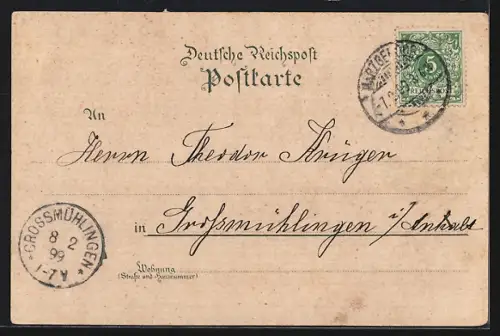 Deutsche Reichspost
Postkarte
5
An
Herrn Theodor Krüger
in Großmühlingen i/Anhalt
GROSSMÜHLINGEN
8 2
99
1-7 V
Wohnung
(Straße und Hausnummer)